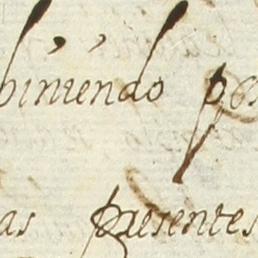 biniendo por
as presentes